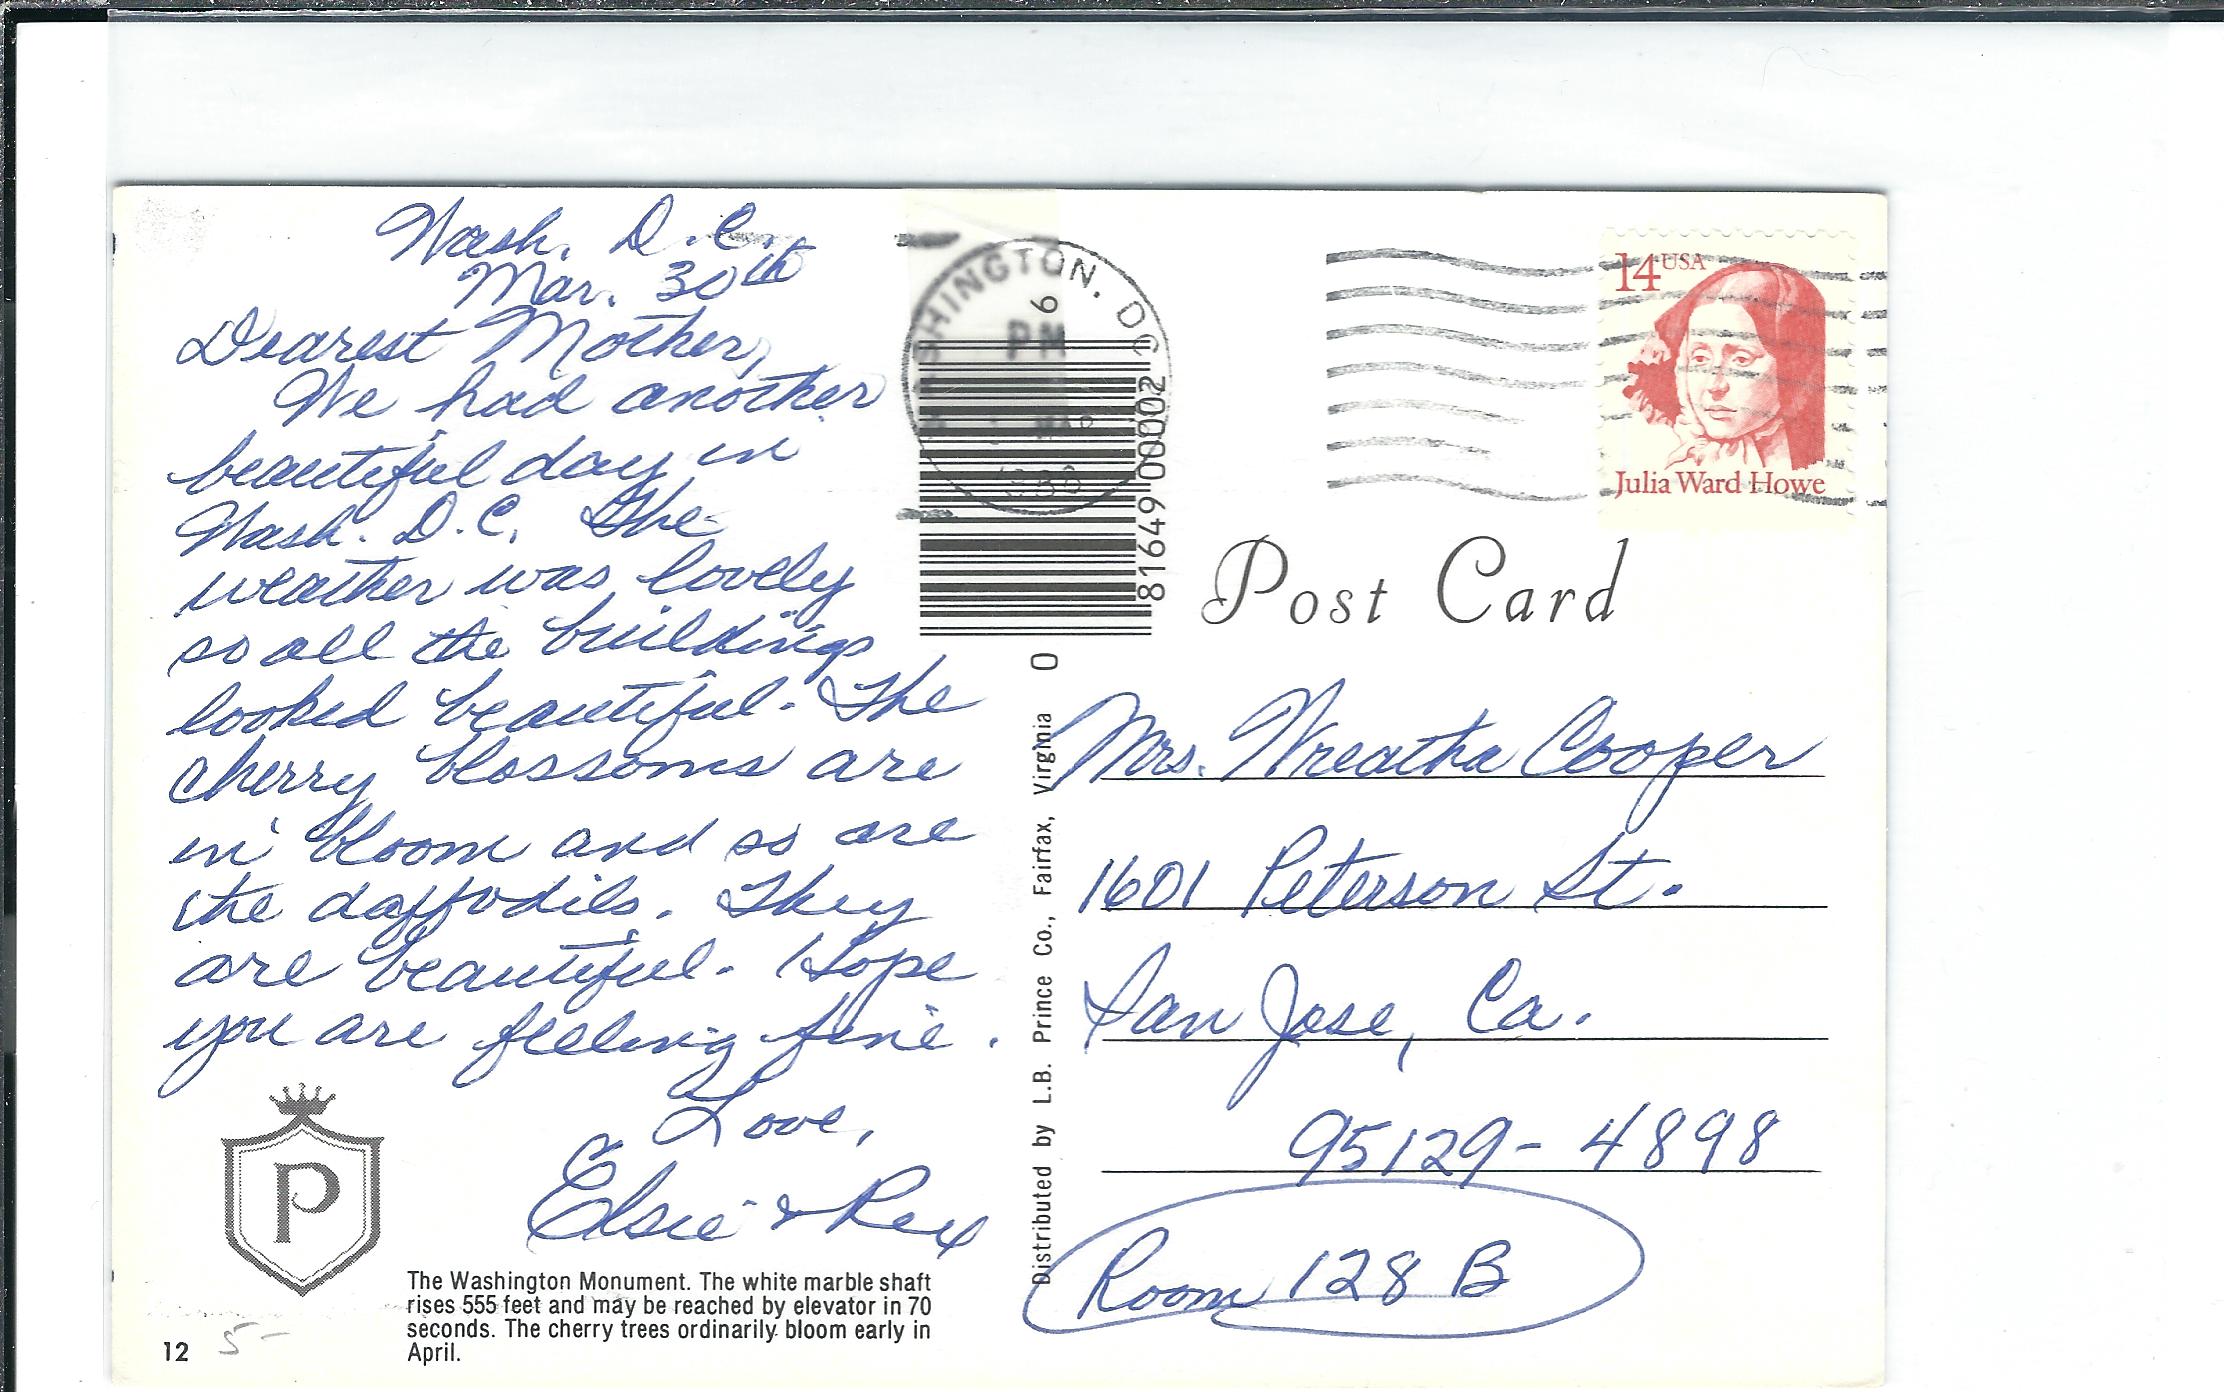 Wash. D.C.
Mar. 30th
Dearest Mother,
We had another
beautiful day in
Wash. D.C. The
weather was lovely
so all the buildings
looked beautiful. The
cherry blossoms are
in bloom and so are
the daffodils. They
are beautiful. Hope
you are feeling fine.
Love,
Elsie & Rex
P
The Washington Monument. The white marble shaft
rises 555 feet and may be reached by elevator in 70
seconds. The cherry trees ordinarily bloom early in
April.
12
5-
SHINGTON, DC
PM
81649 00002
0
Distributed by L.B. Prince Co., Fairfax, Virginia
14 USA
Julia Ward Howe
Post Card
Mrs. Wreatha Cooper
1601 Peterson St.
San Jose, Ca.
95129-4898
Room 128 B